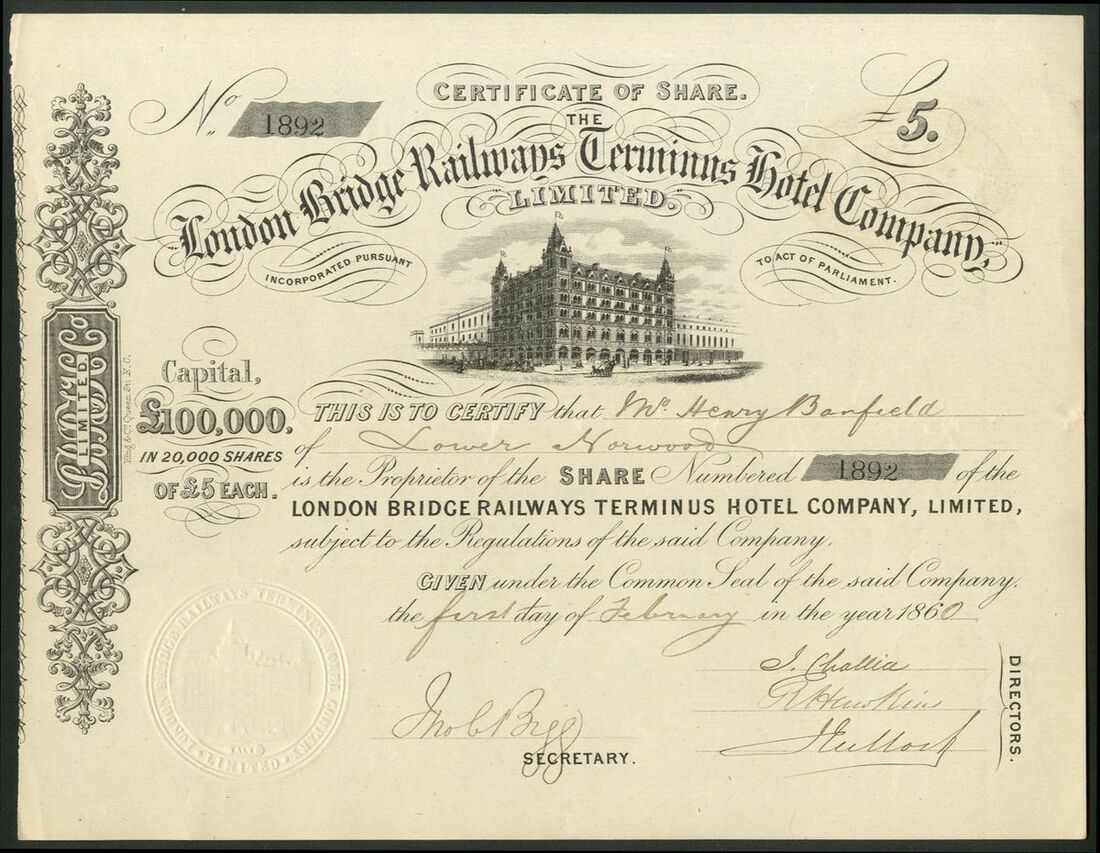 CERTIFICATE OF SHARE.
No. 1892
£5.
THE
London Bridge Railways Terminus Hotel Company,
LIMITED.
INCORPORATED PURSUANT
TO ACT OF PARLIAMENT.
Capital,
£100,000,
IN 20,000 SHARES
OF £5 EACH.
THIS IS TO CERTIFY that Mr. Henry Banfield
of Lower Norwood
is the Proprietor of the SHARE Numbered 1892 of the
LONDON BRIDGE RAILWAYS TERMINUS HOTEL COMPANY, LIMITED,
subject to the Regulations of the said Company.
GIVEN under the Common Seal of the said Company.
the first day of February in the year 1860
J. Challis
R Hawkins
DIRECTORS.
Jno C Bigg
SECRETARY.
LIMITED.
King & Co. Queen St. E.C.
LONDON BRIDGE RAILWAYS TERMINUS HOTEL COMPANY
LIMITED